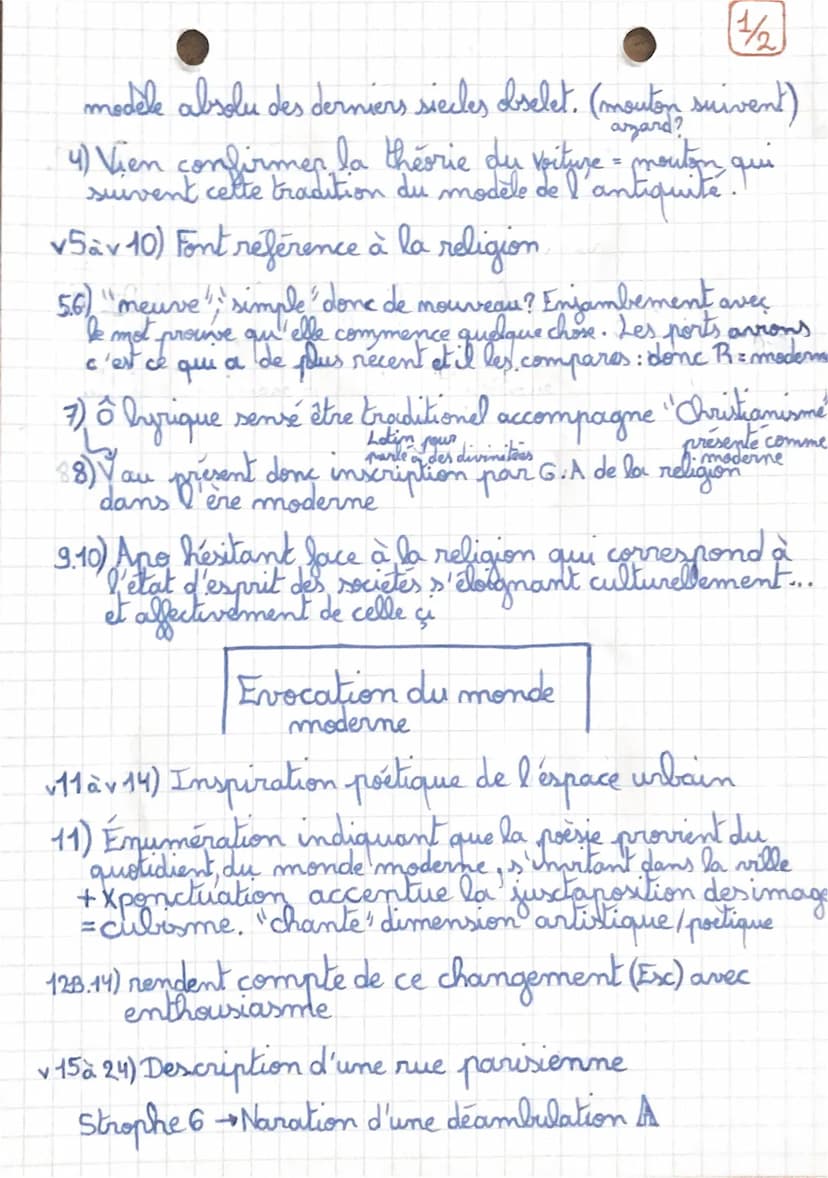 1/2
modèle absolu des derniers siecles obselet. (mouton suivent)
azard?
4) Vien confirmer la théorie du voiture = mouton qui
suivent cette tradition du modèle de l'antiquité.
v5àv10) Font référence à la religion
5.6) "neuve", "simple" donc de nouveau? Enjambement avec
le mot prouve qu'elle commence quelque chose. Les ports avions
c'est ce qui a de plus récent et il les compares : donc R = moderne
7) Ô lyrique sensé être traditionel accompagne "Christianisme"
Latin pour
parle à des divinitées
présenté comme
moderne
8) V au présent donc inscription par G.A de la religion
dans l'ère moderne
9.10) Apo hésitant face à la religion qui correspond à
l'état d'esprit des sociétés s'éloignant culturellement...
et affectivement de celle çi
Evocation du monde
moderne
v11àv14) Inspiration poétique de l'éspace urbain
11) Énumération indiquant que la poèsie provient du
quotidient, du monde moderne, s'invitant dans la ville
+ Xponctuation accentue la juxtaposition des image
= cubisme. "chante" dimension artistique/poetique
12B.14) rendent compte de ce changement (Esc) avec
enthousiasme
v15à 24) Description d'une rue parisienne
Strophe 6 → Naration d'une déambulation A